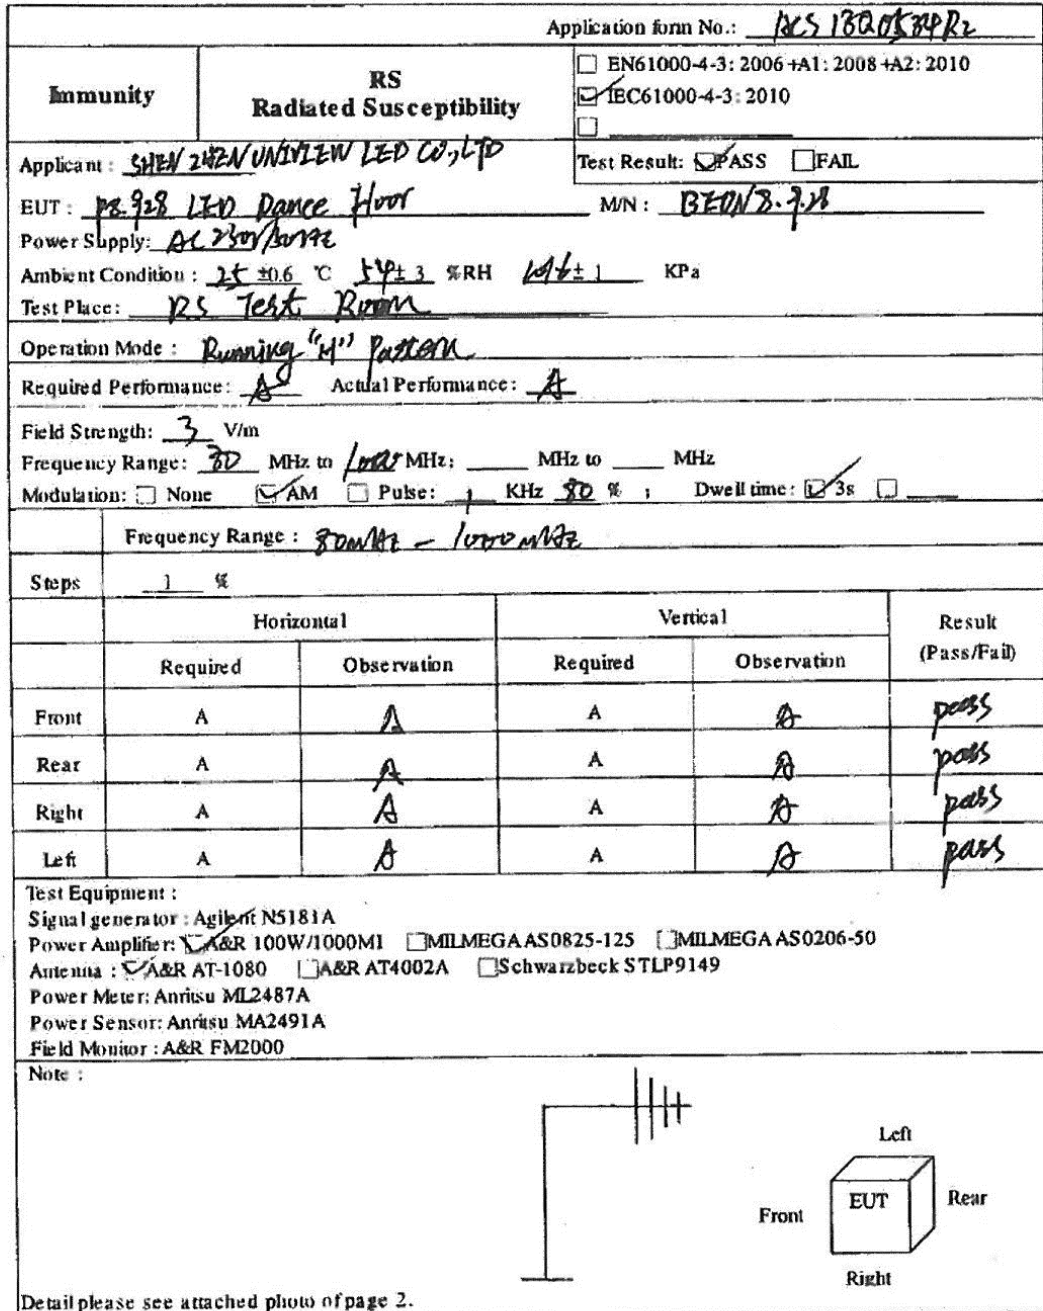 Application form No.: ACS 13Q0534R2
Immunity
RS
Radiated Susceptibility
☐ EN61000-4-3: 2006 +A1: 2008 +A2: 2010
☑ IEC61000-4-3: 2010
☐
Applicant : SHENZHEN UNIVIEW LED CO.,LTD
Test Result: ☑PASS ☐FAIL
EUT : P8.928 LED Dance Floor M/N : BEON8.928
Power Supply: AC 230V/50HZ
Ambient Condition : 25 ±0.6 °C 54 ± 3 %RH ± 1 KPa
Test Place: RS Test Room
Operation Mode : Running "H" Pattern
Required Performance: A Actual Performance: A
Field Strength: 3 V/m
Frequency Range: 80 MHz to 1000 MHz; ____ MHz to ____ MHz
Modulation: ☐ None ☑ AM ☐ Pulse: 1 KHz 80 % ; Dwell time: ☑ 3s ☐
Frequency Range : 80MHz - 1000MHz
Steps 1 %
Horizontal Vertical Result
(Pass/Fail)
Required Observation Required Observation
Front A A A A pass
Rear A A A A pass
Right A A A A pass
Left A A A A pass
Test Equipment :
Signal generator : Agilent N5181A
Power Amplifier: ☑A&R 100W/1000M1 ☐MILMEGA AS0825-125 ☐MILMEGA AS0206-50
Antenna : ☑A&R AT-1080 ☐A&R AT4002A ☐Schwarzbeck STLP9149
Power Meter: Anritsu ML2487A
Power Sensor: Anritsu MA2491A
Field Monitor : A&R FM2000
Note :
Left
Front EUT Rear
Right
Detail please see attached photo of page 2.